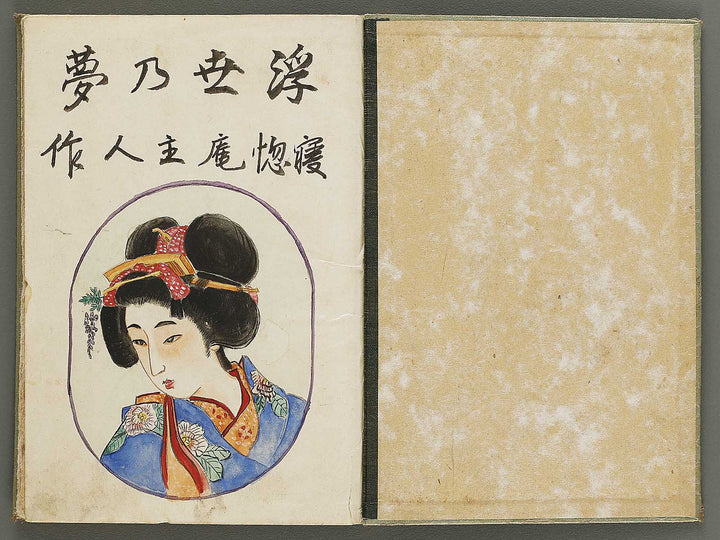 浮世乃夢
寝惚庵主人作